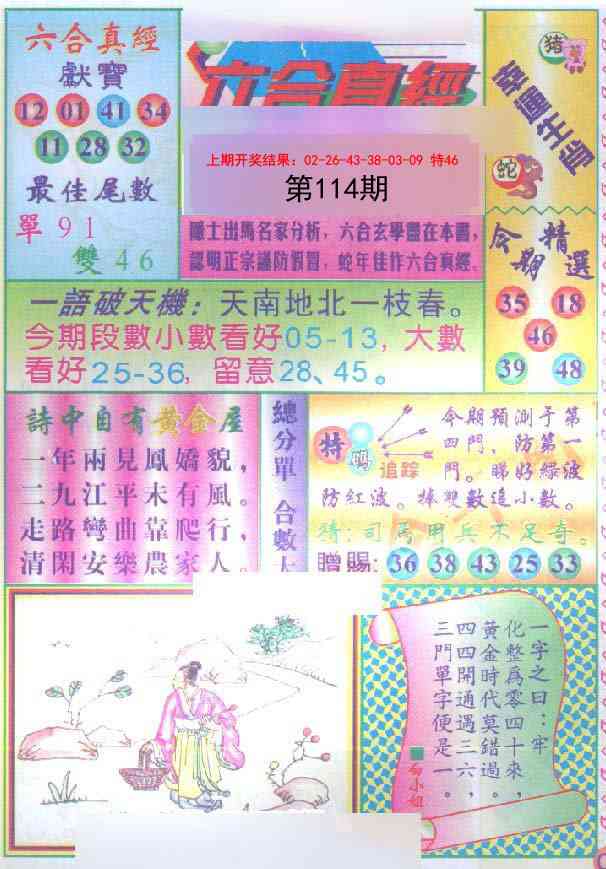 六合真經
獻寶
12 01 41 34
11 28 32
最佳尾數
單91
雙46
六合真經
上期开奖结果：02-26-43-38-03-09 特46
第114期
隱士出馬名家分析，六合玄學盡在本書，
認明正宗謹防假冒，蛇年佳作六合真經。
猪
幸運生肖
蛇
今期精選
35 18
46
39 48
一語破天機：天南地北一枝春。
今期段數小數看好05-13，大數
看好25-36，留意28、45。
詩中自有黃金屋
一年兩見鳳嬌貌，
二九江平未有風。
走路彎曲靠爬行，
清閑安樂農家人。
總分單 合數大
特
碼
追踪
今期預測于第
四門、防第一
門。睇好綠波
防紅波。捧雙數追小數。
猜：司馬用兵不足奇。
贈賜：36 38 43 25 33
一字之曰：牢
化整爲零四十來，
黃金時代莫錯過。
四四開通遇三六，
三門單字便是一。